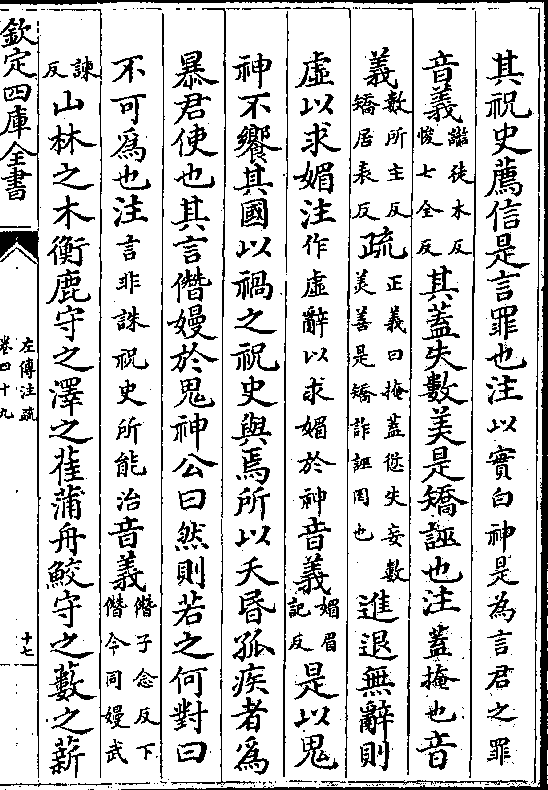 其祝史薦信是言罪也注以實白神是為言君之罪
音義讟徒木反
悛七全反
其蓋失數美是矯誣也注蓋掩也音
義數所主反
矯居表反
疏正義曰掩蓋愆失妄數
美善是矯詐誣罔也
進退無辭則
虛以求媚注作虛辭以求媚於神音義媚眉
記反
是以鬼
神不饗其國以禍之祝史與焉所以夭昏孤疾者為
暴君使也其言僭嫚於鬼神公曰然則若之何對曰
不可為也注言非誅祝史所能治音義僭子念反下
僭令同嫚武
諫
反
山林之木衡鹿守之澤之萑蒲舟鮫守之藪之薪
欽定四庫全書
左傳注疏
卷四十九
十七